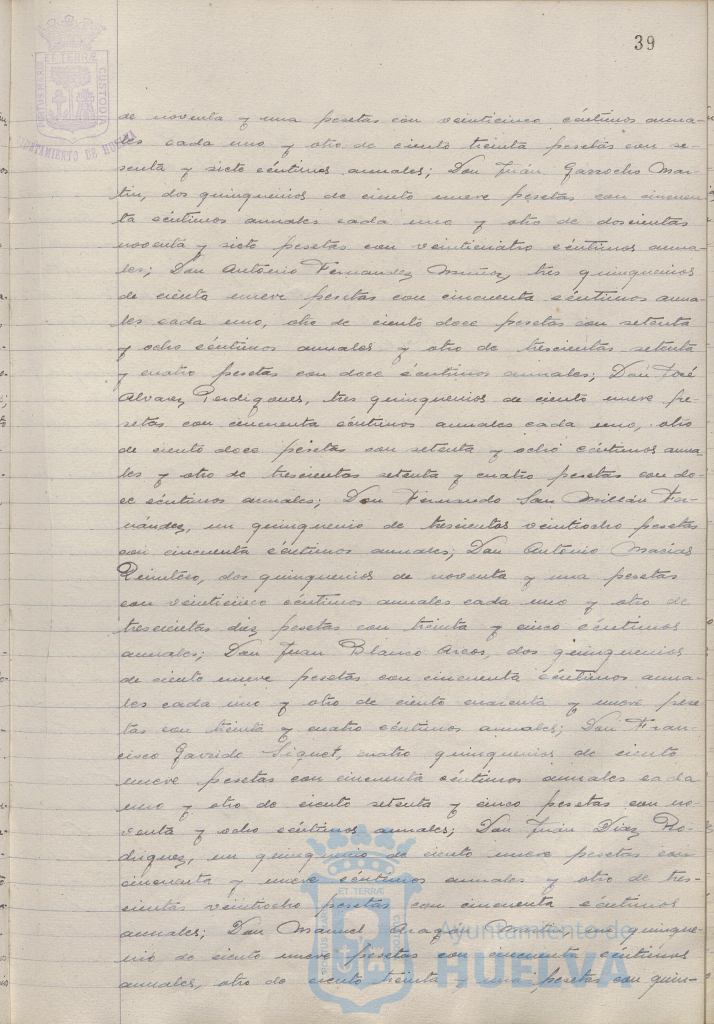 39
PORTUS MARIS ET TERRÆ CUSTODIA
AYUNTAMIENTO DE HUELVA
de noventa y una pesetas con veinticinco céntimos anua-
les cada uno y otro de ciento treinta pesetas con se-
senta y siete céntimos anuales; Don Juán Garrocho Mar-
tin, dos quinquenios de ciento nueve pesetas con cincuen-
ta céntimos anuales cada uno y otro de doscientas
noventa y siete pesetas con veinticuatro céntimos anua-
les; Don António Fernandez Muñoz, tres quinquenios
de ciento nueve pesetas con cincuenta céntimos anua-
les cada uno, otro de ciento doce pesetas con setenta
y ocho céntimos anuales y otro de trescientas setenta
y cuatro pesetas con doce céntimos anuales; Don José
Alvarez Perdigones, tres quinquenios de ciento nueve pe-
setas con cincuenta céntimos anuales cada uno, otro
de ciento doce pesetas con setenta y ocho céntimos anua-
les y otro de trescientas setenta y cuatro pesetas con do-
ce céntimos anuales; Don Fernando San Millán Fer-
nández, un quinquenio de trescientas veintiocho pesetas
con cincuenta céntimos anuales; Don António Macías
Reinoso, dos quinquenios de noventa y una pesetas
con veinticinco céntimos anuales cada uno y otro de
trescientas diez pesetas con treinta y cinco céntimos
anuales; Don Juan Blanco Arcos, dos quinquenios
de ciento nueve pesetas con cincuenta céntimos anua-
les cada uno y otro de ciento cuarenta y nueve pese-
tas con treinta y cuatro céntimos anuales; Don Fran-
cisco Garrido Siguet, cuatro quinquenios de ciento
nueve pesetas con cincuenta céntimos anuales cada
uno y otro de ciento setenta y cinco pesetas con no-
venta y ocho céntimos anuales; Don Juán Díaz Ro-
driguez, un quinquenio de ciento nueve pesetas con
cincuenta y nueve céntimos anuales y otro de tres-
cientas veintiocho pesetas con cincuenta céntimos
anuales; Don Manuel Aragón Martin, un quinque-
nio de ciento nueve pesetas con cincuenta céntimos
anuales, otro de ciento treinta y una pesetas con quin-
PORTUS MARIS ET TERRÆ CUSTODIA
Ayuntamiento de
HUELVA